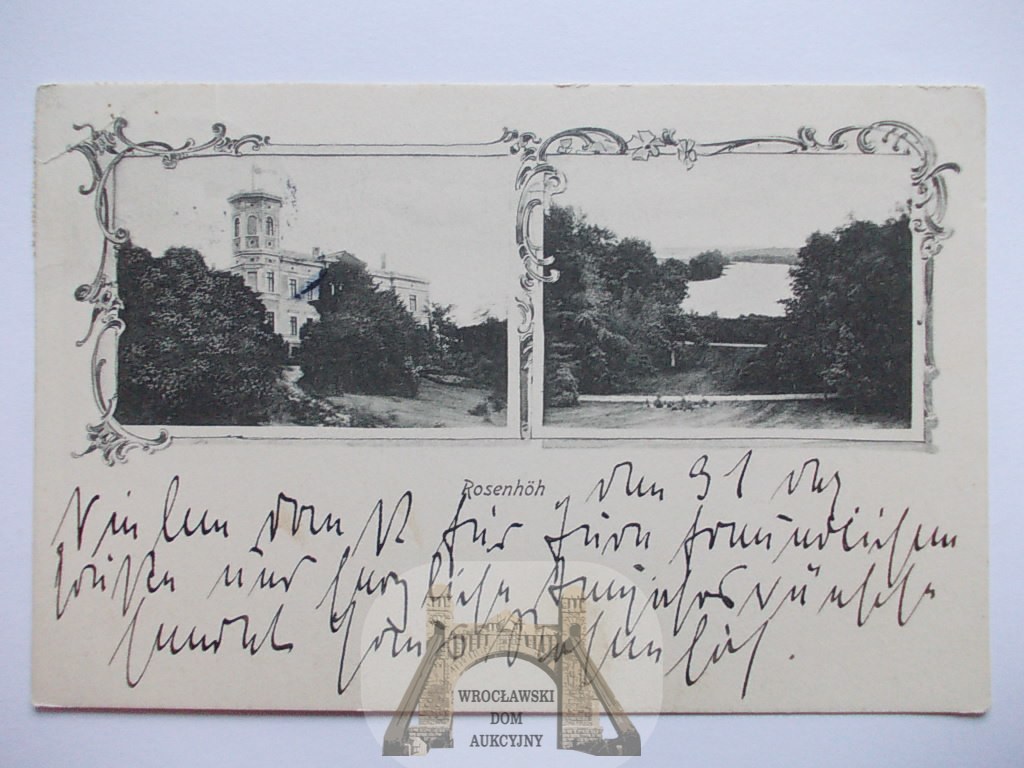 Rosenhöh
den 31 Dez
Vielen Dank für Eure freundlichen
Grüße und herzliche Neujahrswünsche
sendet Rosenhöh.
WROCŁAWSKI
DOM
AUKCYJNY